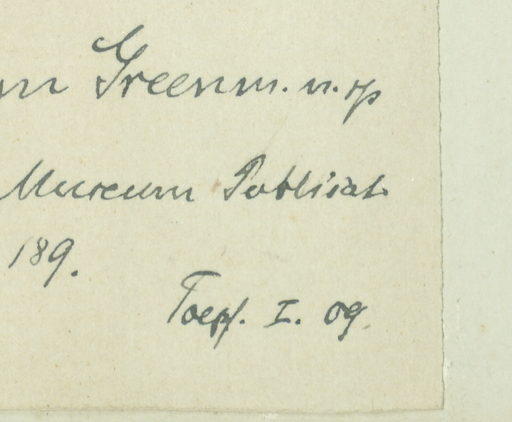 Greenm. n. sp
Museum Publicat.
189.
Toepf. I. 09.